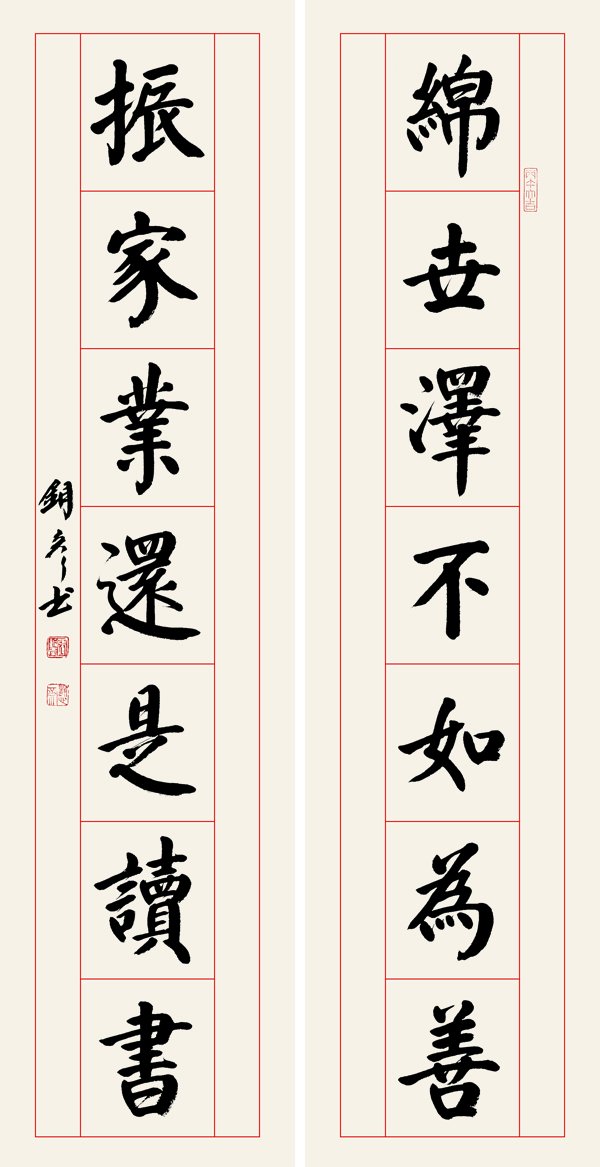 綿世澤不如為善
振家業還是讀書